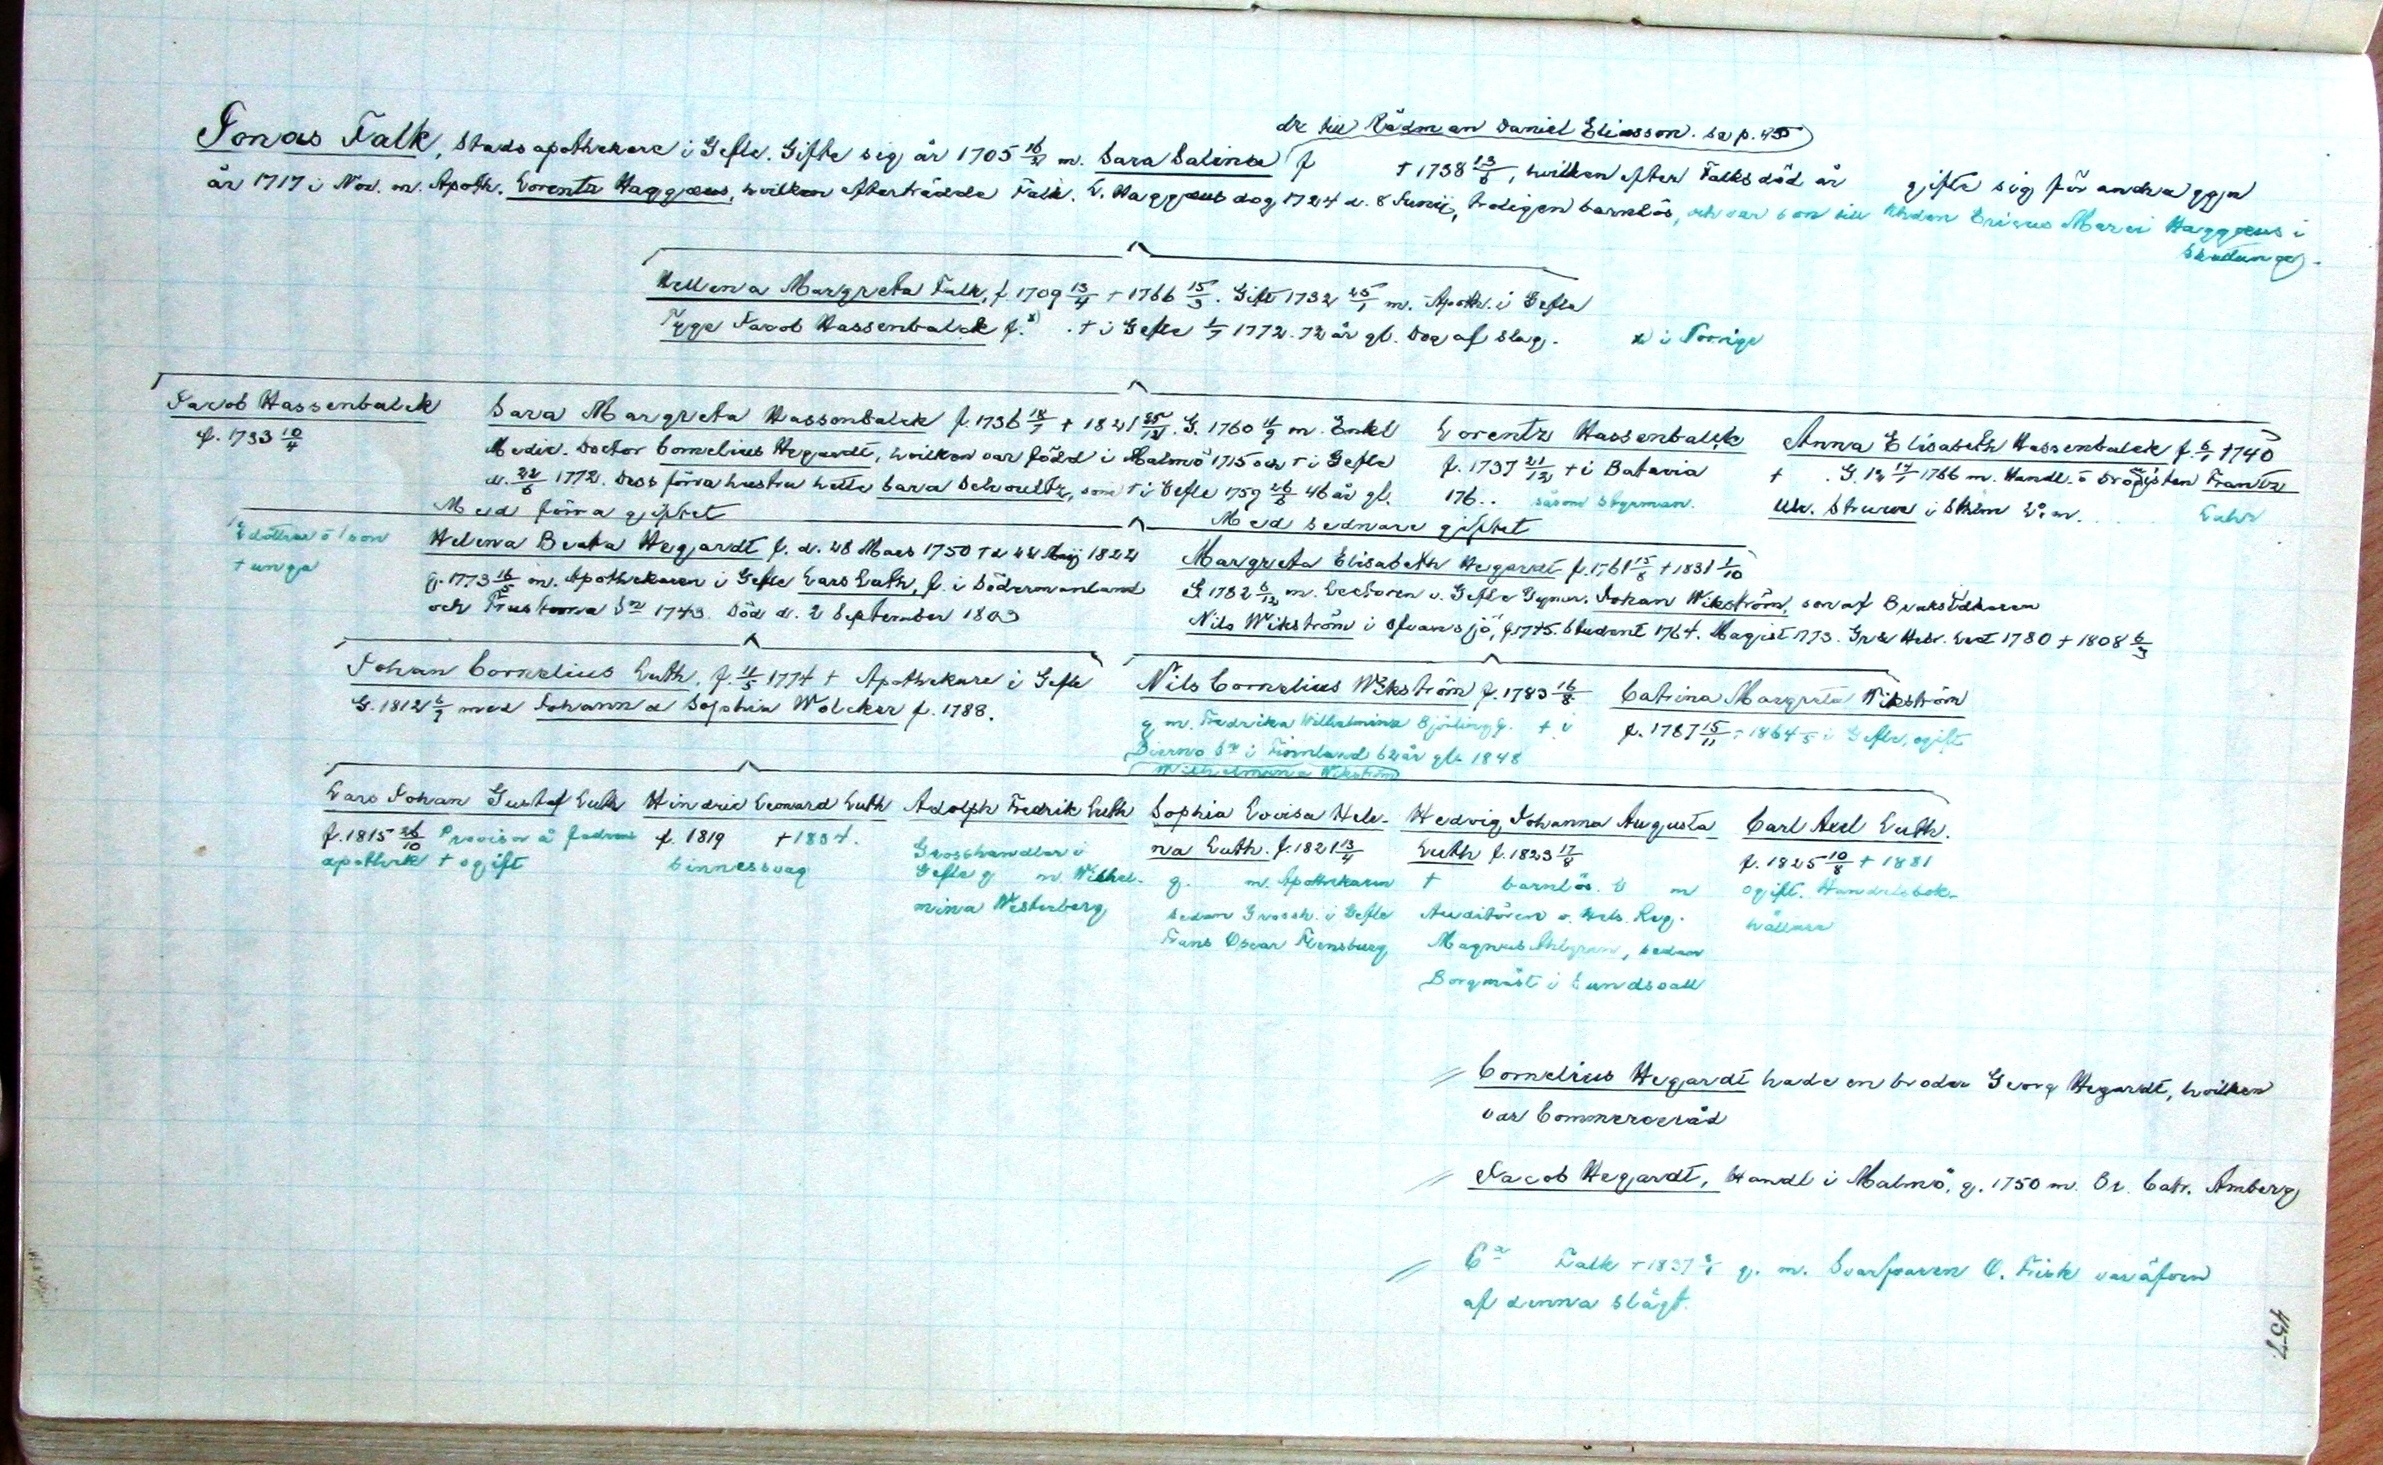 dr till Rådman Daniel Eliasson. se p. 45
Jonas Falk, Stadsapothekare i Gefle. Gifte sig år 1705 16/2 m. Sara Salina f † 1738 13/6, hvilken efter Falks död år gifte sig för andra ggn
år 1717 i Nov. m. Apoth. Lorentz Haggæus, hvilken efterträdde Falk. L. Haggæus dog 1724 d. 8 Junij, troligen barnlös, och var son till Khdn Ericus Marci Haggæus i
Skutunge.
Hellena Margreta Falk, f 1709 13/4 † 1766 15/3. Gift 1732 25/1 m. Apoth. i Gefle
Tyge Jacob Hassenbalck f. x) . † i Gefle 1/7 1772. 72 år gl. Dog af slag. x) i Norrige
Jacob Hassenbalck
f. 1733 10/4
Sara Margreta Hassenbalck f. 1736 18/7 † 1821 25/12. G. 1760 11/9 m. Enkl
Medic. Doctor Cornelius Hegardt, hvilken var född i Malmö 1715 och † i Gefle
d. 22/6 1772. Dess förra hustru hette Sara Schoultz, som † i Gefle 1759 26/6 46 år gl.
Lorentz Hassenbalck
f. 1737 21/12 † i Batavia
176.. såsom Styrman.
Anna Elisabeth Hassenbalck f. 6/1 1740
† . G. 17/7 1766 m. Handl. o Drogisten Frantz
Ulr. Struwe i Sthlm
Med förra giftet
Med sednare giftet
2 döttrar o 1 son
† unga
Helena Beata Hegardt f. d. 28 Mars 1750 † d 22 Maj 1822
g. 1773 16/5 m. Apothekaren i Gefle Lars Luth, f. i Södermanland
och Frustuna Sn 1743. Död d. 2 September 1803
Margreta Elisabeth Hegardt f. 1761 15/8 † 1831 1/10
G 1782 6/12 m. Lectoren v. Gefle Gymn. Johan Wikström, son af Bruksidkaren
Nils Wikström i Svansjö, f. 1745. Student 1764. Magist 1773. Gr & Hebr. Lect 1780 † 1808 6/3
Johan Cornelius Luth, f. 11/5 1774 † Apothekare i Gefle
G. 1812 6/9 med Johanna Sophia Wolcker f. 1788.
Nils Cornelius Wikström f. 1783 16/8
g m. Fredrika Wilhelmina Björling f. † i
Bierno Sn i Finnland 62 år gl. 1848
Wilhelmina Wikström
Catrina Margreta Wikström
f. 1787 15/11 † 1864 i Gefle, ogift
Lars Johan Gustaf Luth
f. 1815 26/10 Provisor å fadrens
apothek † ogift
Hindric Leonard Luth
f. 1819 † 1834.
sinnessvag
Adolph Fredrik Luth
Grosshandlar i
Gefle g m. Wilhel-
mina Westerberg
Sophia Lovisa Hele-
na Luth. f. 1821 13/4
g. m. Apothekaren
sedan Grossh. i Gefle
Frans Oscar Flensburg
Hedvig Johanna Augusta
Luth f. 1823 17/8
† barnlös. G m
Auditören v. Hels. Reg.
Magnus Ahlgren, sedan
Borgmäst i Sundsvall
Carl Axel Luth.
f. 1825 10/8 † 1881
ogift. Handelsbok-
hållare
Cornelius Hegardt hade en broder Georg Hegardt, hvilken
var Commerceråd
Jacob Hegardt, Handl i Malmö, g. 1750 m. Br. Catr. Amberg
Falk † 1837 g. m. Svarfvaren O. Fisk var äfven
af denna slägt.
457.